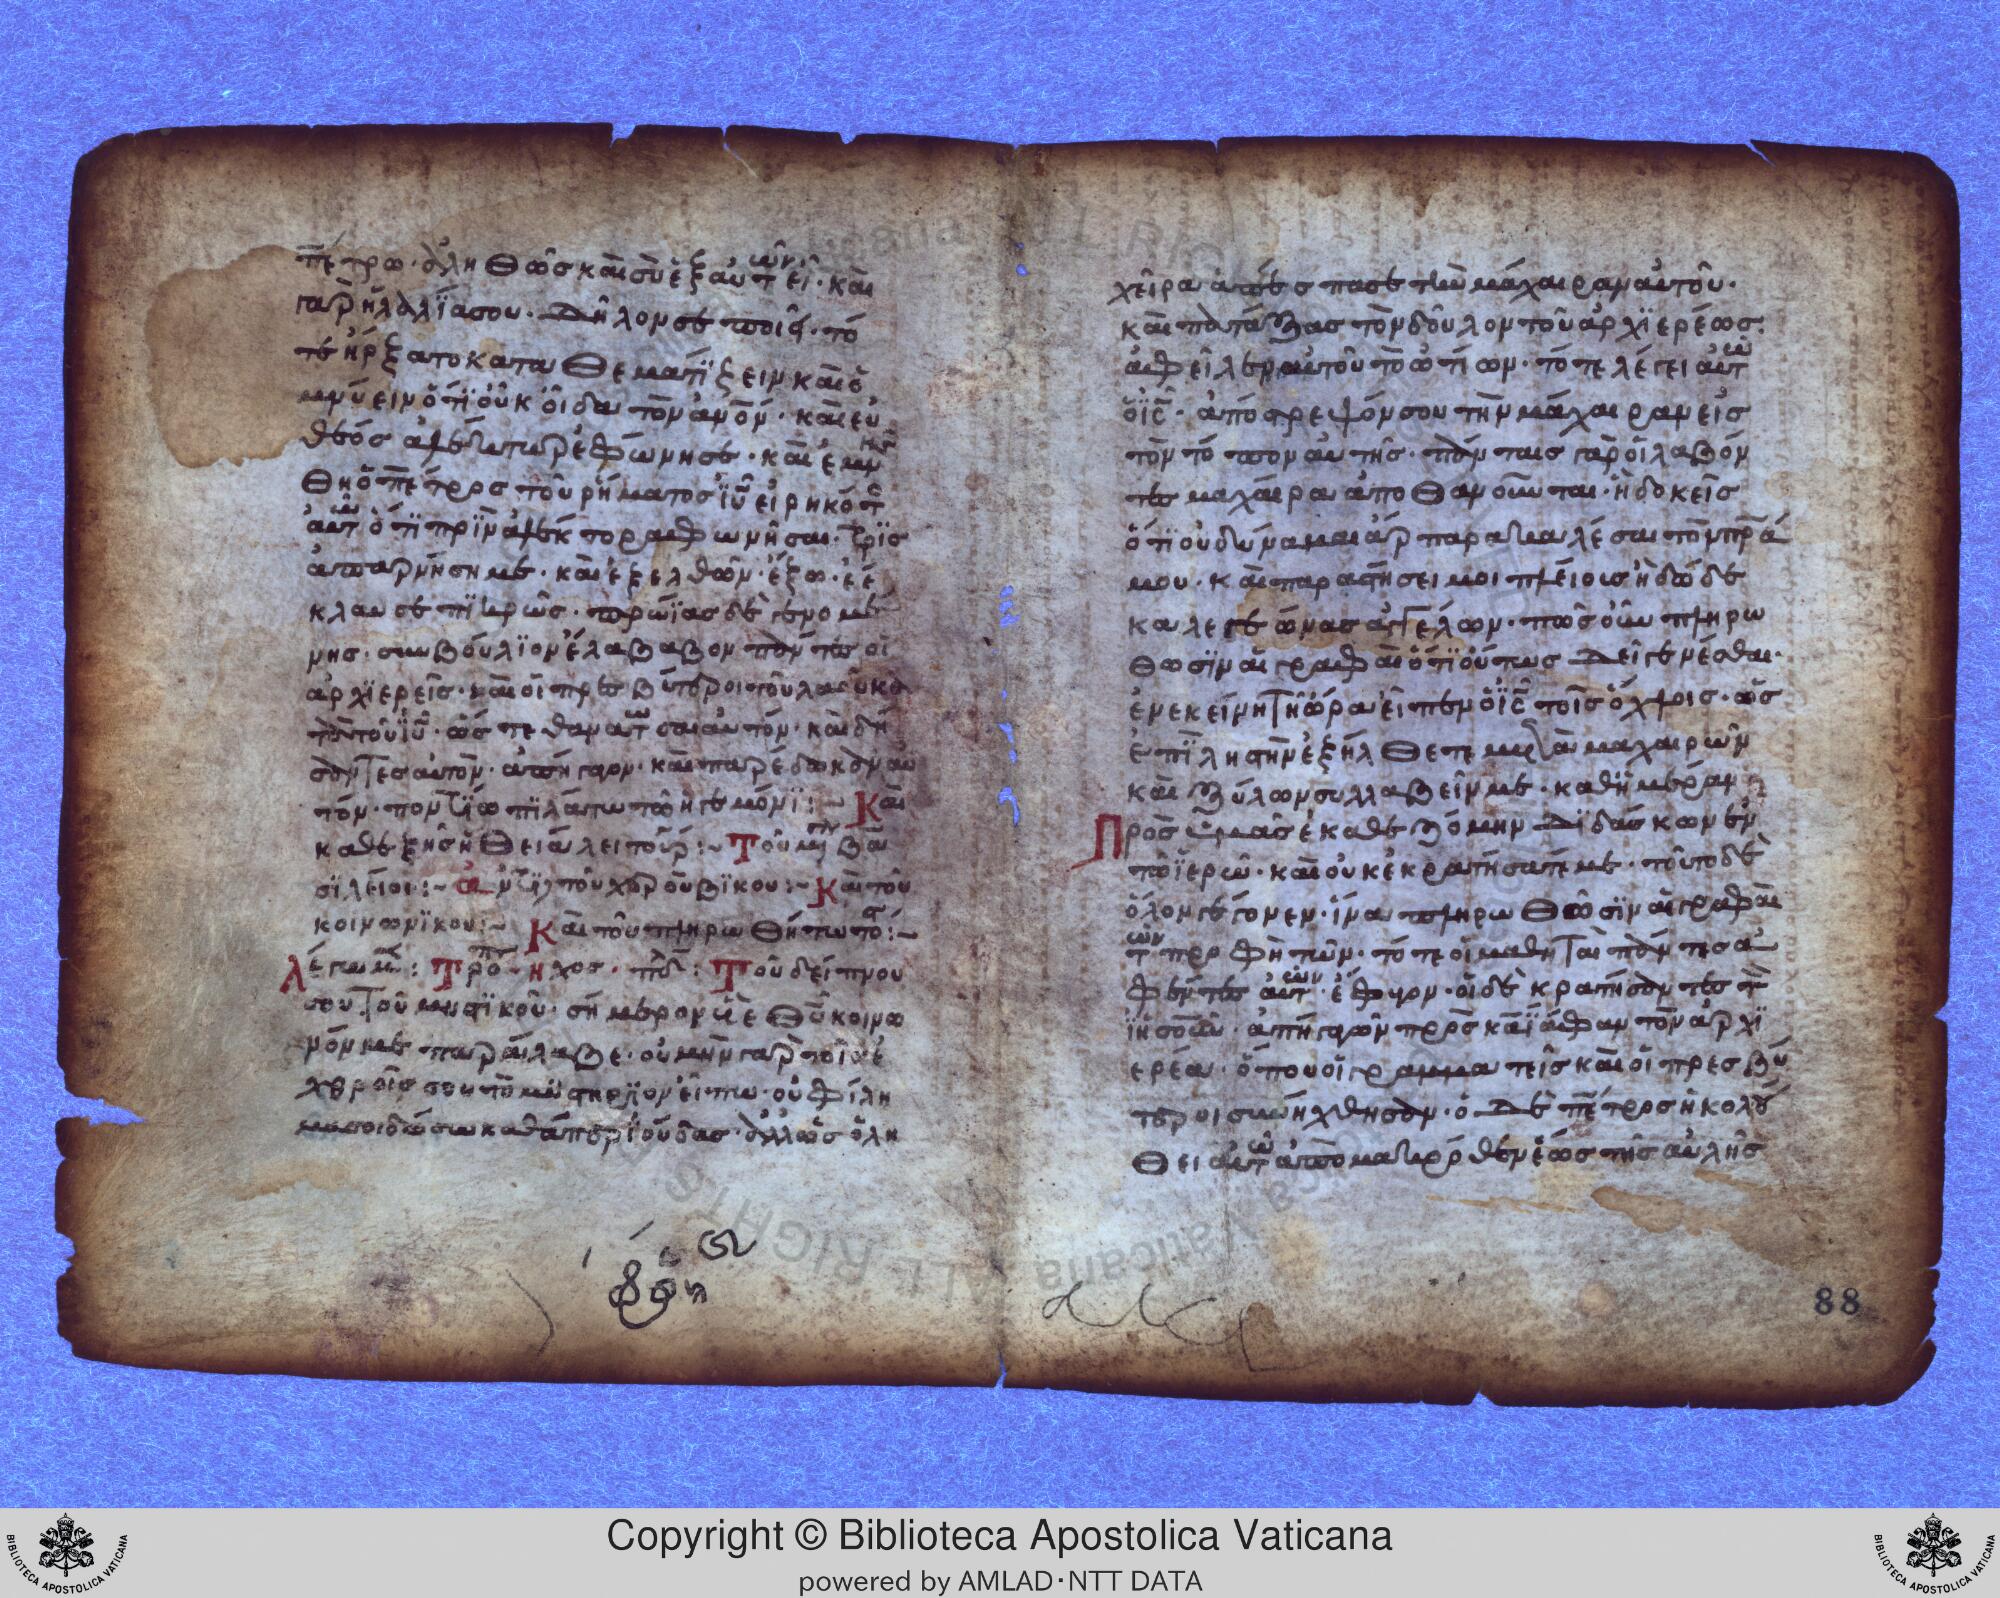 πέτρω· ἀληθῶς καὶ σὺ ἐξ αὐτῶν εἶ· καὶ
γὰρ ἡ λαλϊά σου· δῆλόν σε ποιεῖ· τό
τε ἤρξατο καταθεματΐζειν καὶ ὀ
μνύειν ὅτϊ οὐκ οἶδα τὸν ἄνον· καὶ εὐ
θέως ἀλέκτωρ ἐφώνησε· καὶ ἐμνή
θη ὁ πέτρος τοῦ ῥήματος ϊῦ εἰρηκότος
αὐτῶ ὅτϊ πρὶν ἀλέκτορα φωνῆσαι· τρὶς
ἀπαρνήση με· καὶ ἐξελθὼν· ἔξω· ἔ
κλαυσε πϊκρῶς· πρωΐας δὲ γενομέ
νης· συνβούλϊον ἔλαβαβον πάντες οἱ
ἀρχϊερεῖς· καὶ οἱ πρεσβύτεροι τοῦ λαοῦ κα
τὰ τοῦ ϊῦ· ὥστε θανατῶσαι αὐτόν· καὶ δή
σαντες αὐτὸν· ἀπήγαγον· καὶ παρέδωκαν αὐ
τόν· ποντΐω πϊλάτω τῶ ἡγεμόνϊ:~ Καὶ
καθεξῆς ἡ θεία λειτουρ:~ Τοῦ μ βα
σϊλείου:~ ἀντϊ τοῦ χερουβϊκοῦ:~ Καὶ τοῦ
κοινωνϊκοῦ:~ Καὶ τοῦ πληρωθήτω τὸ:~
Λέγωμ: Τρο ἦχος· πλδ: Τοῦ δείπνου
σου τοῦ μυστϊκοῦ· σήμερον ὑὲ θῦ κοινω
νόν με παράλαβε· οὐ μὴν γὰρ τοῖς ἐ
χθροῖς σου τὸ μυστήρϊον εἴπω· οὐ φίλη
μα σοι δώσω καθάπερ ϊούδας· ἀλλ ὡς ὁ λη
χεῖρα ἀπέσπασε τὴν μάχαιραν αὐτοῦ·
καὶ πατάξας τὸν δοῦλον τοῦ ἀρχϊερέως·
ἀφεῖλεν αὐτοῦ τὸ ὠτίων· τότε λέγει αὐτῶ
ὁ ϊς· ἀπόστρεψόν σου τὴν μάχαιραν εἰς
τὸν τόπον αὐτῆς· πάντες γὰρ οἱ λαβόν
τες μαχαίρα ἀποθανοῦνται· ἢ δοκεῖς
ὅτϊ οὐ δύναμαι ἄρ παρακαλέσαι τὸν πρά
μου· καὶ παραστήσει μοι πλείους ἢ δώδε
κα λεγεώνας ἀγγέλων· πῶς οὖν πληρω
θωσϊν αἱ γραφαὶ ὅτϊ οὕτως δεῖ γενέσθαι·
ἐν ἐκείνη τῆ ὥρα εἶπεν ὁ ϊς τοῖς ὄχλοις· ὡς
ἐπϊ ληστὴν ἐξήλθετε μετὰ μαχαιρῶν
καὶ ξύλων συλλαβεῖν με· καθημέραν
Πρὸς ὑμᾶς ἐκαθεζόμην διδάσκων ἐν
τῶ ϊερῶ· καὶ οὐκ ἐκρατήσατέ με· τοῦτο δὲ
ὅλον γέγονεν· ἵνα πληρωθῶσϊν αἱ γραφαὶ
τῶν προφητῶν· τότε οἱ μαθηταὶ πάντες ἀ
φέντες αὐτὸν· ἔφυγον· οἱ δὲ κρατήσαντες τὸν
ϊησοῦν· ἀπήγαγον πρὸς καϊάφαν τὸν ἀρχϊ
ερέα· ὅπου οἱ γραμματεῖς καὶ οἱ πρεσβύ
τεροι συνήχθησαν· ὁ δὲ πέτρος ἠκολού
θει αὐτῶ ἀπὸ μακρόθεν ἕως τῆς αὐλῆς
88
Copyright © Biblioteca Apostolica Vaticana
powered by AMLAD·NTT DATA